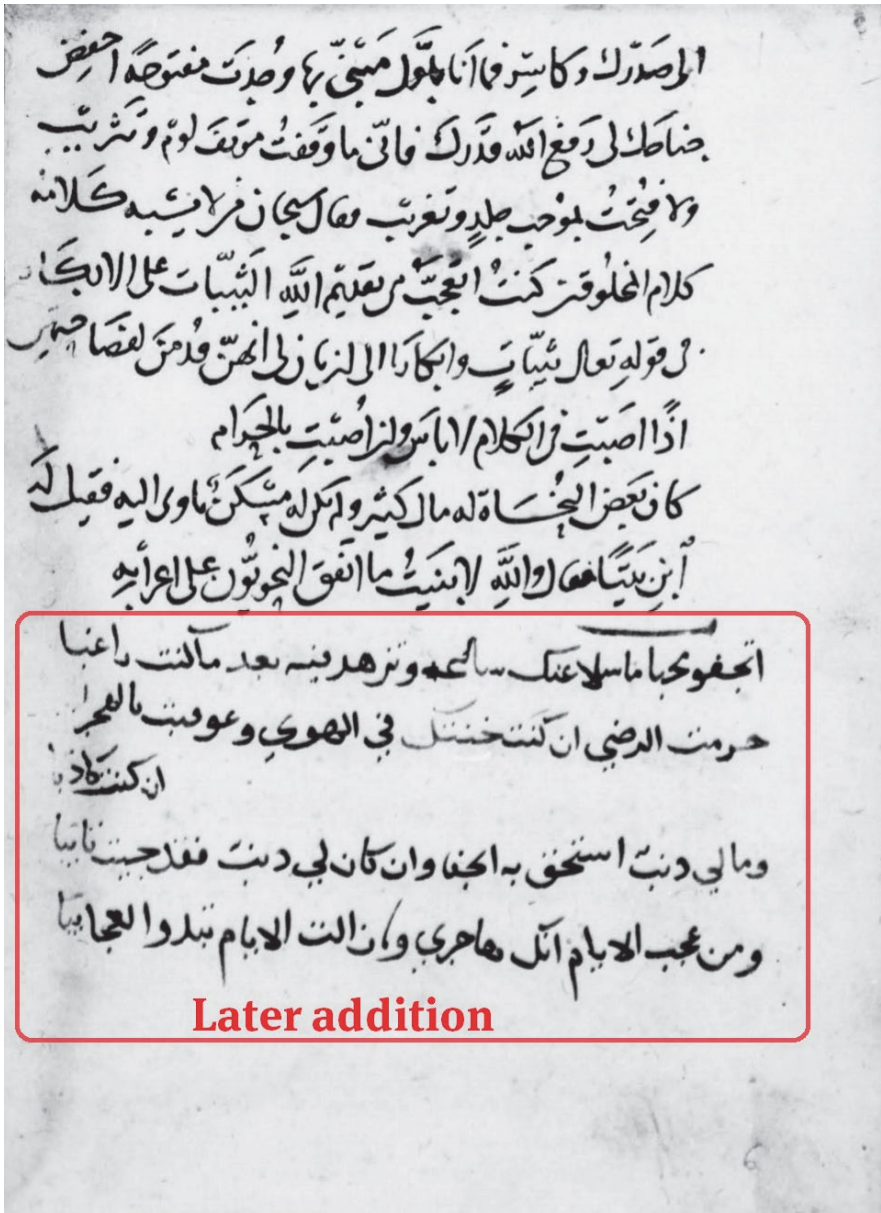 الى صدرك وكاسر فما انا باوّل مبنيّ بها وُجدت مفتوحةً اخفض
جناحك لى رفع الله قدرك فانّى ما وقفتُ موقف لوْم وتثريب
ولا فُتحتُ بموجب جلدٍ وتغريب فقال سبحان من لا يشبه كلامه
كلام المخلوقين كنتُ اتعجّبُ من تقديم اللّٰه الثيّبات على الابكار
فى قوله تعالى ثيّباتٍ وابكارًا الى ان بان لى انهنّ قدمن
اذًا اصبتِ فى الكلام لا باس وان اُصبتِ بالحرام
كان بعض النُّحاة له مال كثير ولم يكن له مسكنٌ ياوى اليه فقيل له
اُبنِ بَيتًا فقال واللّٰه لا بنيتُ ما اتفق النحويّون على اعرابه
اتجفو محبا ما سلا عنك ساعة وتزهد فيه بعد ما كنت راغبا
حرمت الرضي ان كنت خنتك في الهوي وعوقبت بالهجر
ان كنت كاذبا
وما لي دنب استحق به الجفا وان كان لي دنب فقد جيت تايبا
ومن عجب الايام انك هاجري والت الايام تبدوا العجايبا
Later addition